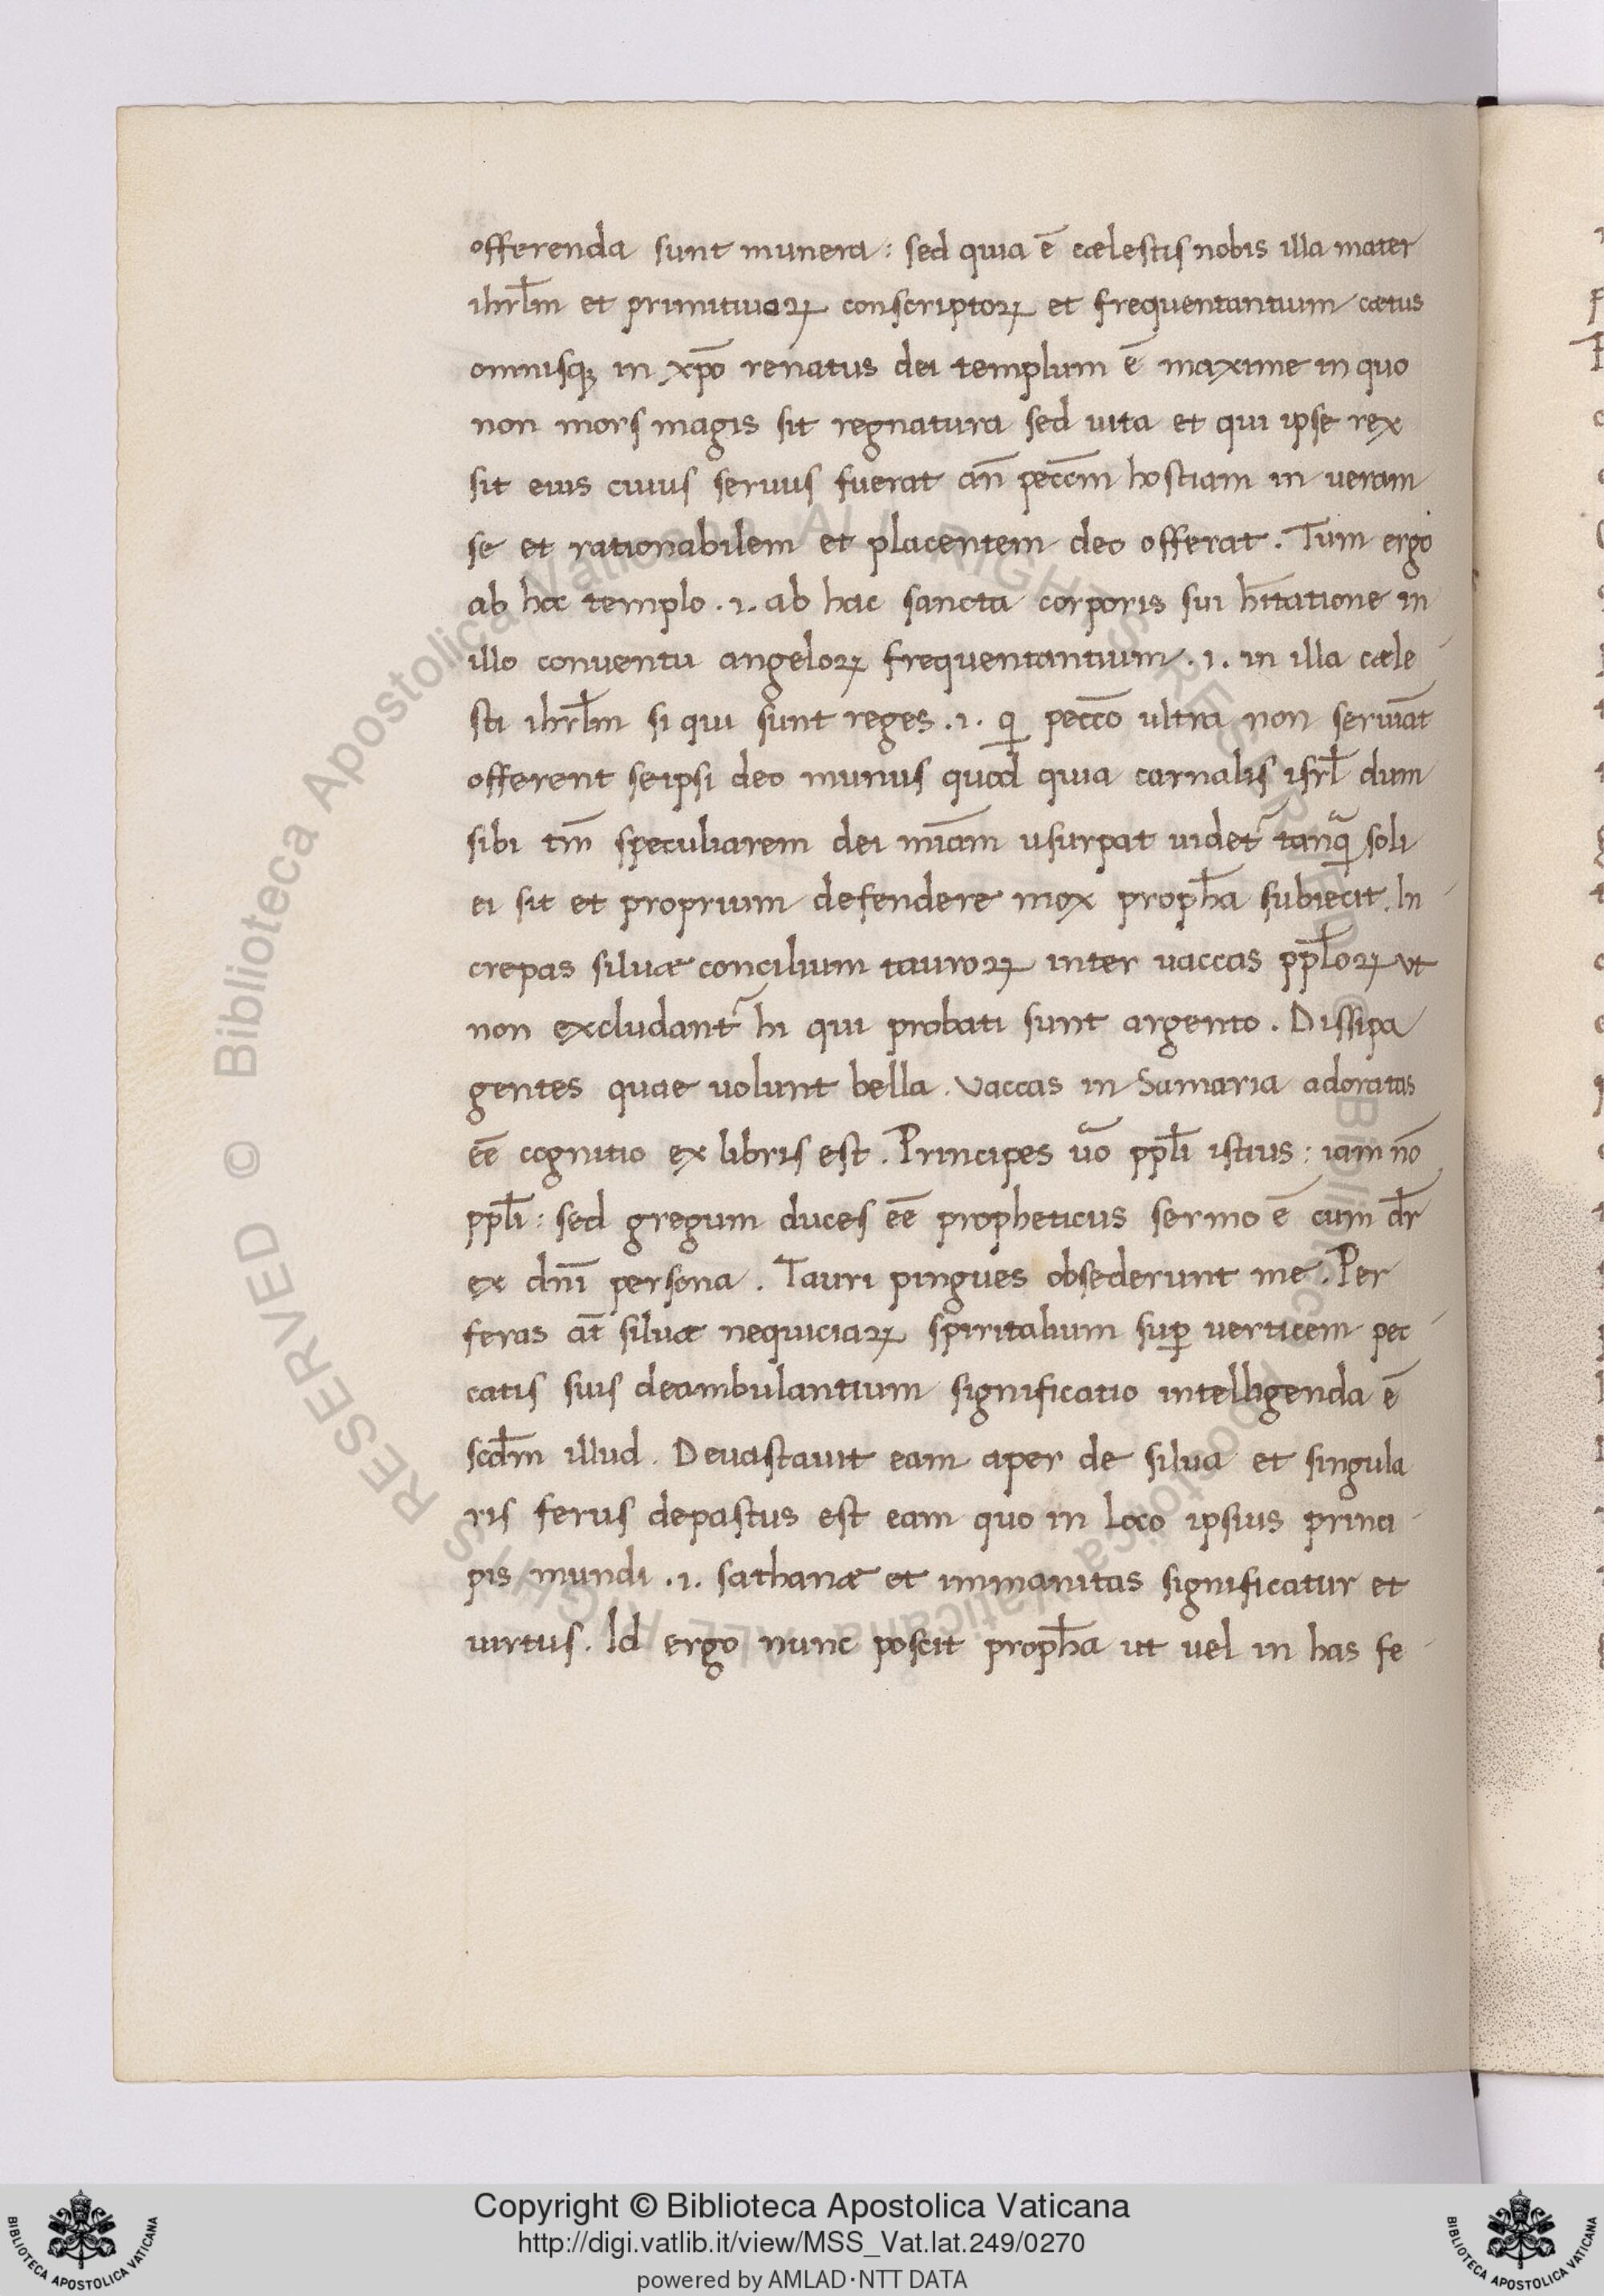 offerenda sunt munera: sed quia ē cælestis nobis illa mater
ihrl̄m et primitiuoꝝ conscriptoꝝ et frequentantium cætus
omnisqꝫ in xp̄o renatus dei templum ē maxime in quo
non mors magis sit regnatura sed uita et qui ipse rex
sit eius cuius seruus fuerat an̄ pecc̄m hostiam in ueram
se et rationabilem et placentem deo offerat. Tum ergo
ab hoc templo .i. ab hac sancta corporis sui hītatione in
illo conuentu angeloꝝ frequentantium .i. in illa cæle
sti ihrl̄m si qui sunt reges .i. qi pecc̄o ultra non seruiāt
offerent seipsi deo munus quod quia carnalis isrl̄ dum
sibi tm̄ speculiarem dei mīam usurpat uidet᷑ tanqᷓ soli
ei sit et proprium defendere mox proph̄a subiecit. In
crepas siluæ concilium tauroꝝ inter uaccas pp̄loꝝ ut
non excludant᷑ hi qui probati sunt argento. Dissipa
gentes quae uolunt bella. Vaccas in Samaria adoratas
eē cognitio ex libris est. Principes uō pp̄li istius: iam nō
pp̄li: sed gregum duces eē propheticus sermo ē cum dr̄
ex dn̄i persona. Tauri pingues obsederunt me. Per
feras at̄ siluæ nequiciaꝝ spiritalium suꝑ uerticem pec
catis suis deambulantium significatio intelligenda ē
scd̄m illud. Deuastauit eam aper de silua et singula
ris ferus depastus est eam quo in loco ipsius princi
pis mundi .i. sathanæ et immanitas significatur et
uirtus. Id ergo nunc poscit proph̄a ut uel in has fe
Copyright © Biblioteca Apostolica Vaticana
http://digi.vatlib.it/view/MSS_Vat.lat.249/0270
powered by AMLAD·NTT DATA